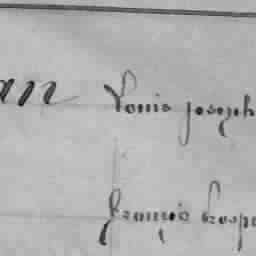 an Louis joseph
françois prosp